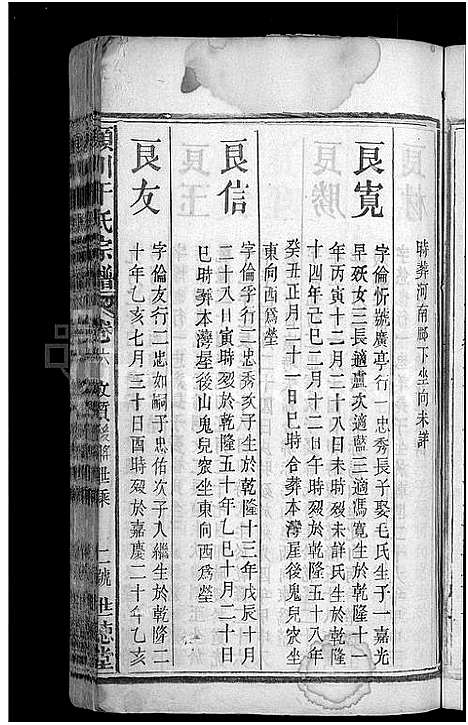 時葬河南鄉下坐向未詳
良寬
字倫忻號廣亭行一忠秀長子娶毛氏生子一嘉光
早殀女三長適盧次適藍三適馮寬生於乾隆十一
年丙寅十二月二十八日未時歿未詳氏生於乾隆
十四年己巳二月十二日午時歿於乾隆五十八年
癸丑正月二十一日巳時合葬本灣屋後鬼兒窊坐
東向西爲塋
良信
字倫孚行二忠秀次子生於乾隆十三年戊辰十月
二十八日寅時歿於乾隆五十年乙巳十月二十日
巳時葬本灣屋後山鬼兒窊坐東向西爲塋
良友
字倫友行一忠如嗣子忠佑次子入繼生於乾隆二
十年乙亥七月三十日酉時歿於嘉慶二十年乙亥
潁川干氏宗譜 卷之六 世系 二號 世德堂